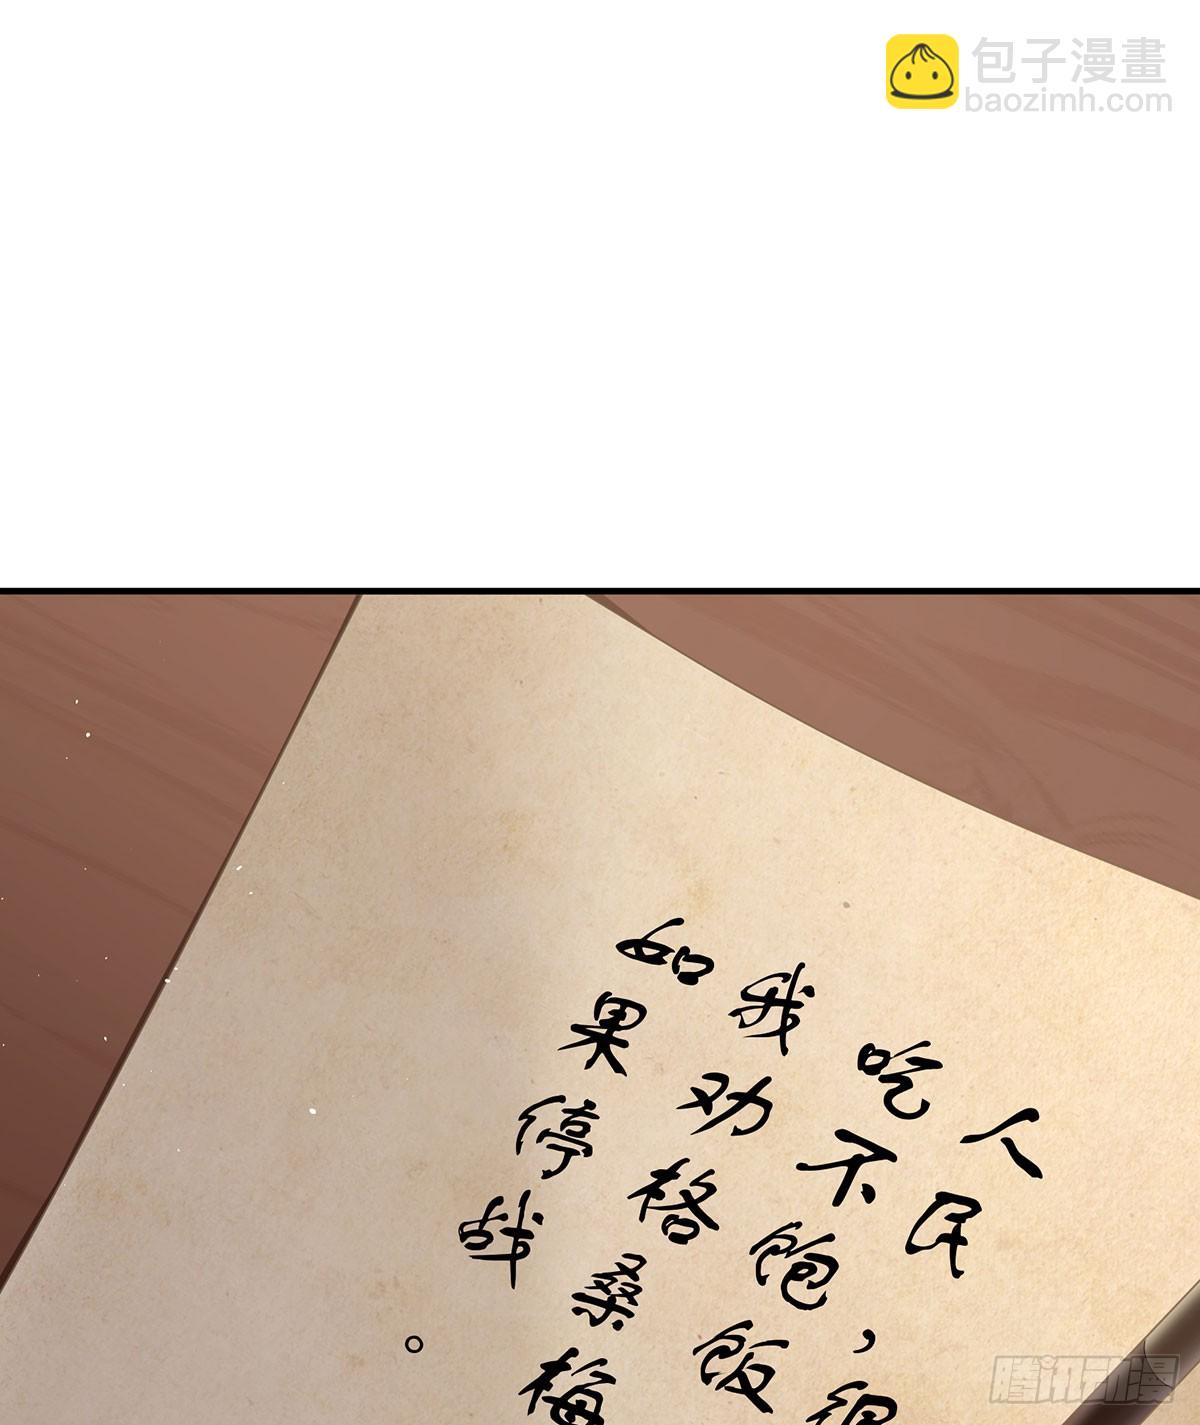 包子漫畫
baozimh.com
人民，很
吃不饱饭
我劝格桑梅
如果停战。
腾讯动漫